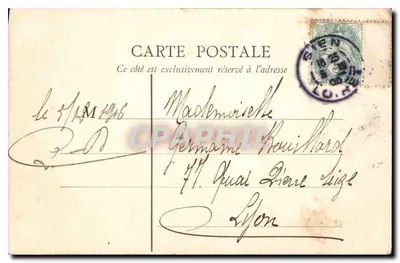 CARTE POSTALE
Ce côté est exclusivement réservé à l'adresse
GIEN
LOIRET
Mademoiselle
Germaine Rouillard
77 Quai Pierre Seize
Lyon